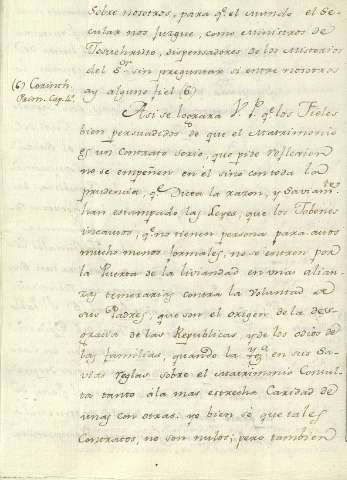 Sobre nosotros, para q.e el mundo el Se-
cular nos juzgue, como Ministros de
Jesuchristo, dispensadores de los Misterios
del S.r sin preguntar si entre nosotros
ay alguno fiel (6)
(6) Corinth.
Cap. 4.
Asi se lograrà V. P. q.e los Fieles
bien persuadidos de que el Matrimonio
es un Contrato serio, que pide reflexion
no se empeñen en el sino con toda la
prudencia, q.e Dicta la razon, y Saviam.te
han estampado las Leyes, que los Jobenes
incautos, q.e no tienen persona para autos
mucho menos formales, no se entren por
la Puerta de la liviandad en unas alian-
zas temerarias contra la Voluntad de
sus Padres, que son el origen de la des-
gracia de las Republicas, y de los odios de
las familias, quando la en sus Sa-
vias reglas sobre el Matrimonio Consul-
ta tanto á la mas estrecha Caridad de
unas con otras: yo bien se que tales
Contratos, no son nulos; pero tambien